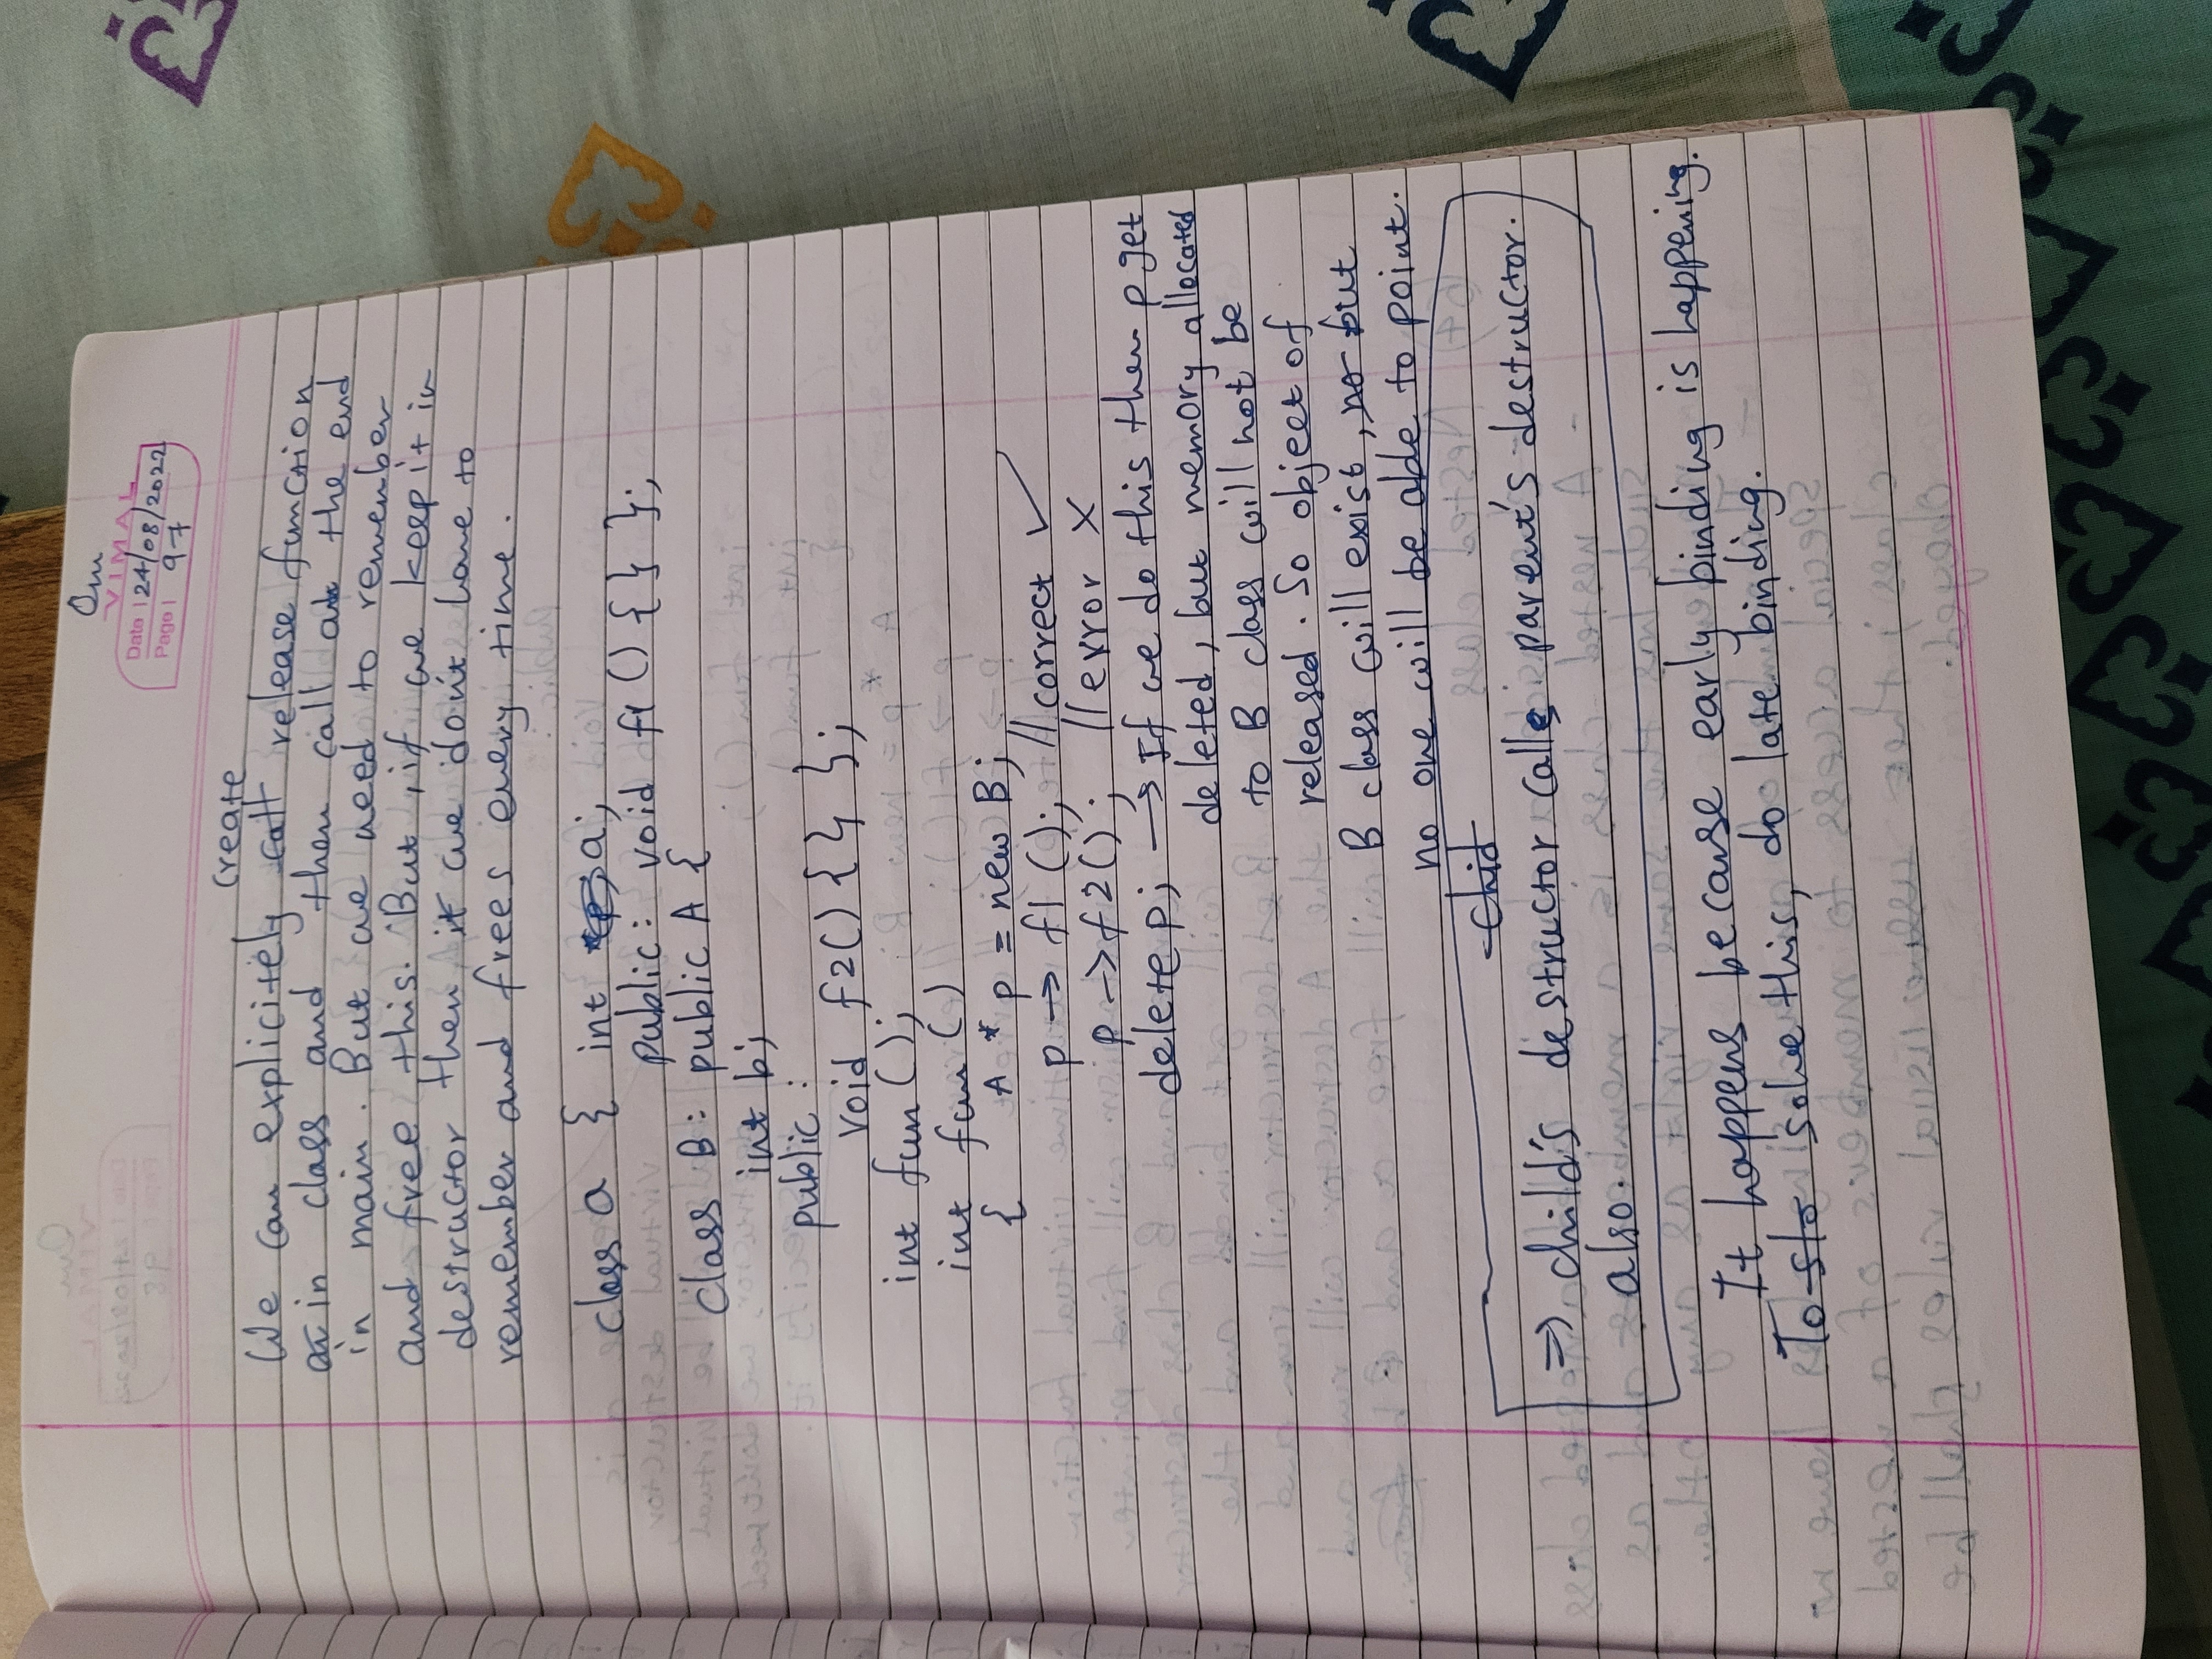 Om
VIMAL
Date | 24/08/2022
Page | 97
create
We can explicitely call release function
in class and then call at the end
in main. But we need to remember
and free this. But, if we keep it in
destructor then it we don't have to
remember and frees every time.
class a { int a;
public: void f1() { } };
class B: public A {
int b;
public:
void f2() { } };
int fun();
int fun()
{ A * p = new B;
p → f1 (); // correct ✓
p → f2(); // error X
delete p; → If we do this then p get
deleted, but memory allocated
to B class will not be
released. So object of
B class will exist, no but
no one will be able to point.
Chid
⇒ child's destructor calls parent's destructor.
also.
It happens because early binding is happening.
To sto solve this, do late binding.